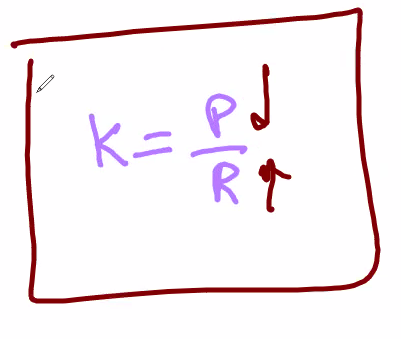 K = P/R